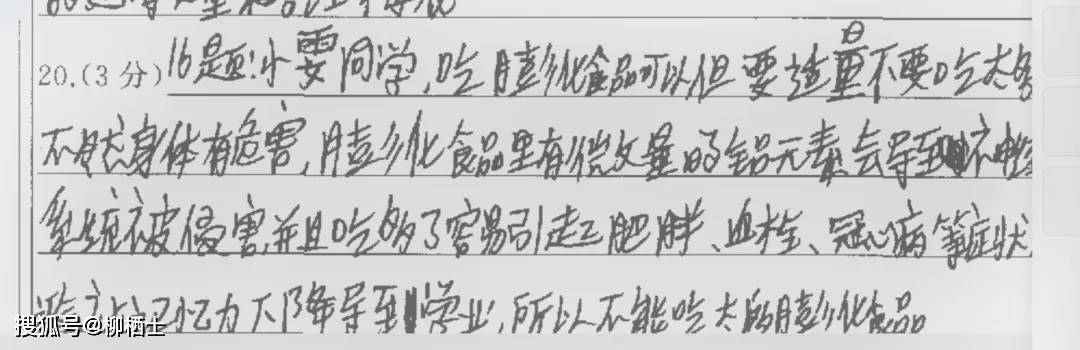 20.(3分)16题:小雯同学,吃膨化食品可以但要适量不要吃太多
不然身体有危害,膨化食品里有微量的铝元素会导致神经
系统被侵害并且吃多了容易引起肥胖、血栓、冠心病等症状
记忆力下降导致学业,所以不能吃太多膨化食品
搜狐号@柳栖士